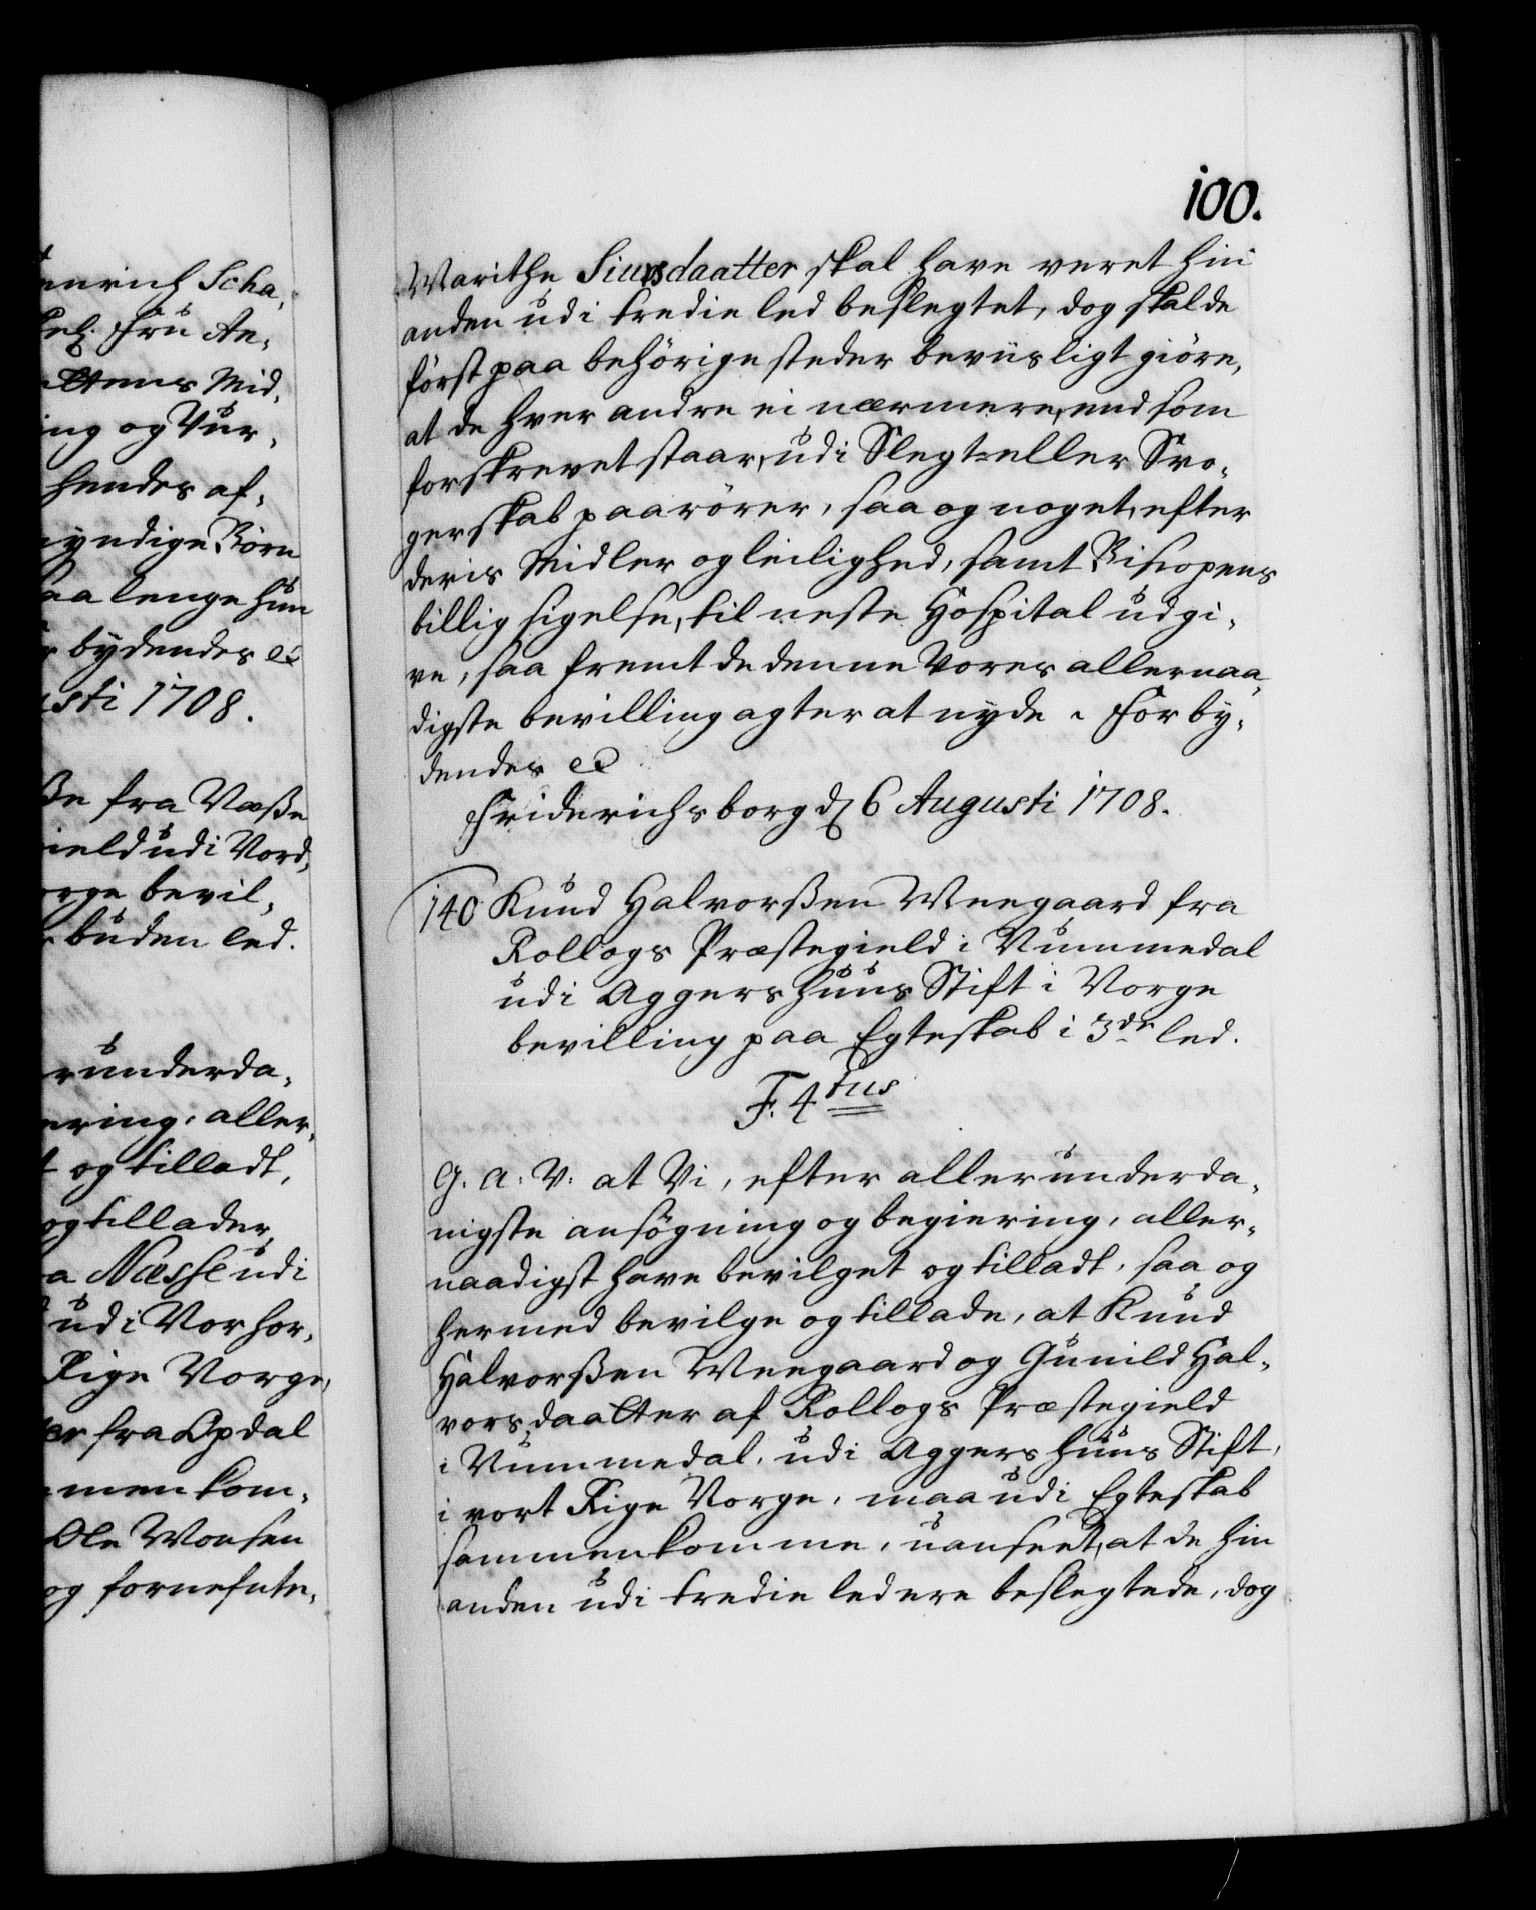 enrich Scha,
Sel. Fru An,
attens Mid,
ing og Vur,
hendes af,
yndige Börn
saa lenge hun
bydendes etc
usti 1708.
ße fra Næße
gield udi Nord,
orge bevil,
buden led.
erunderda,
iering, aller,
t og tilladt,
og tillader,
a Næsse udi
udi Nor hor,
Rige Norge,
er fra Opdal
men kom,
Ole Monsen
og fornefnte,
100.
Marithe Siursdaatter skal have veret hin
anden udi tredie led beslegtet, dog skal de
först paa behörige steder beviisligt giöre,
at de hver andre ei nærmere, end som
forskrevet staar, udi Slegt= eller Svo,
gerskab paarörer, saa og noget, efter
deris Midler og leilighed, samt Biscopens
billig sigelse, til neste Hospital udgi,
ve, saa fremt de denne Vores allernaa,
digste bevilling agter at nyde. For by,
dendes etc
Friderichsborg d. 6 Augusti 1708.
140 Knud Halvorßen Weegaard fra
Rollogs Præstegield i Nummedal
udi Aggershuus Stift i Norge
bevilling paa Egteskab i 3de led.
F. 4tus
G. A. V. at Vi, efter allerunderda,
nigste ansögning og begiering, aller,
naadigst have bevilget og tilladt, saa og
hermed bevilge og tillade, at Knud
Halvorßen Weegaard og Gunild Hal,
vorsdaatter af Rollogs Præstegield
i Nummedal, udi Aggershuus Stift,
i vort Rige Norge, maa udi Egteskab
sammenkomme, uanseet, at de hin
anden udi tredie led ere beslegtede, dog